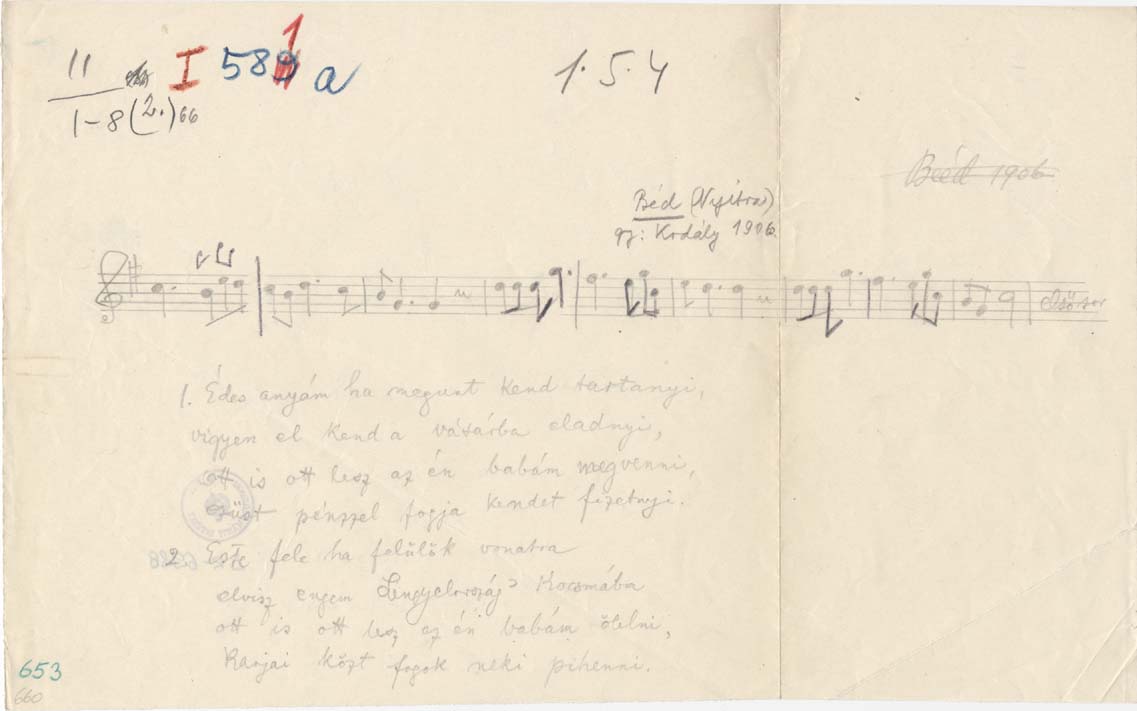 11
I 581 a
1-8 (2.) 66
1. 5. 4
Béd 1906
Béd (Nyitra)
gy: Kodály 1906.
elsősor
1. Édes anyám ha megunt kend tartanyi,
vigyen el kend a vásárba eladnyi,
ott is ott lesz az én babám megvenni,
ezüst pénzzel fogja kendet fizetnyi.
2 Este fele ha felülök vonatra
elvisz engem Lengyelország kocsmába
ott is ott lesz az én babám ölelni,
Karjai közt fogok neki pihenni.
653
660